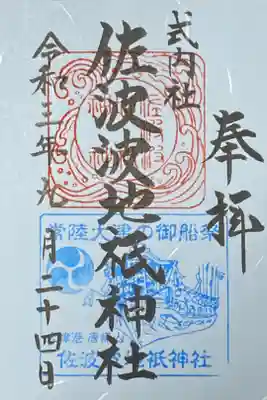 奉拝
式内社
佐波波地祇神社
令和三年九月二十四日
常陸大津の御船祭
佐波波地祇神社